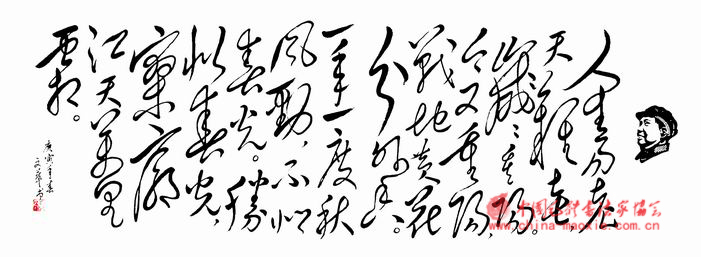 人生易老
天難老
歲々重陽。
今又重陽，
戰地黃花
分外香。
一年一度秋
風勁，不似
春光。勝
似春光，
寥廓
江天萬里
霜。
庚寅年春
中国毛体书法家协会
www.china-maoxie.com.cn